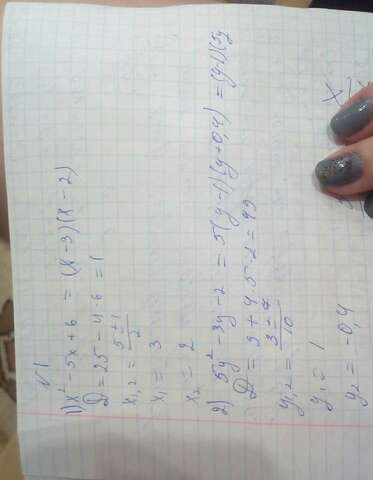 №1
1) x² - 5x + 6 = (x - 3)(x - 2)
D = 25 - 4·6 = 1
x₁,₂ = (5 ± 1)/2
x₁ = 3
x₂ = 2
2) 5y² - 3y - 2 = 5(y - 1)(y + 0,4) = (y - 1)(5y
D = 9 + 4·5·2 = 49
y₁,₂ = (3 ± 7)/10
y₁ = 1
y₂ = -0,4
x